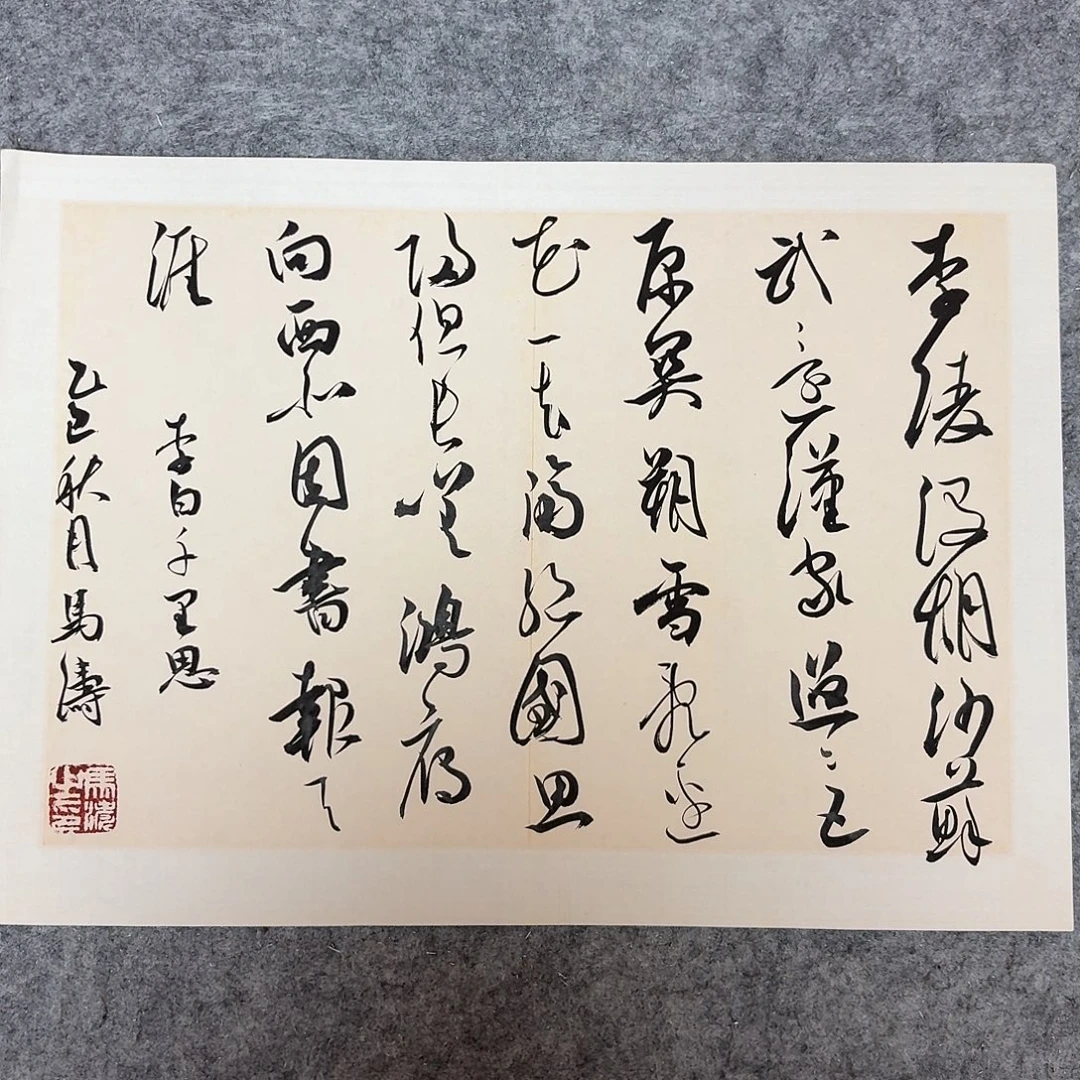 李陵没胡沙蘇
武還漢家迢〻五
原關朔雪亂邊
花一去隔絕國思
歸但長嗟鴻雁
向西北因書報天
涯
李白千里思
乙巳秋月馬濤